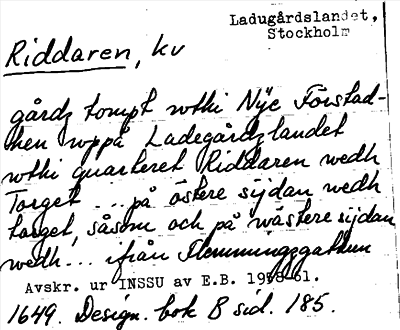 Ladugårdslandet,
Stockholm
Riddaren, kv
gårdz tompt uthi Nÿe Förstad-
hen uppå Ladegårdzlandet
uthi quarteret Riddaren wedh
Torget ... på östere sijdan wedh
torget, såsom och på wästere sijdan
wedh... ifrån Flemmingzgathun
Avskr. ur INSSU av E.B. 1958-61.
1649. Design. bok B sid. 185.